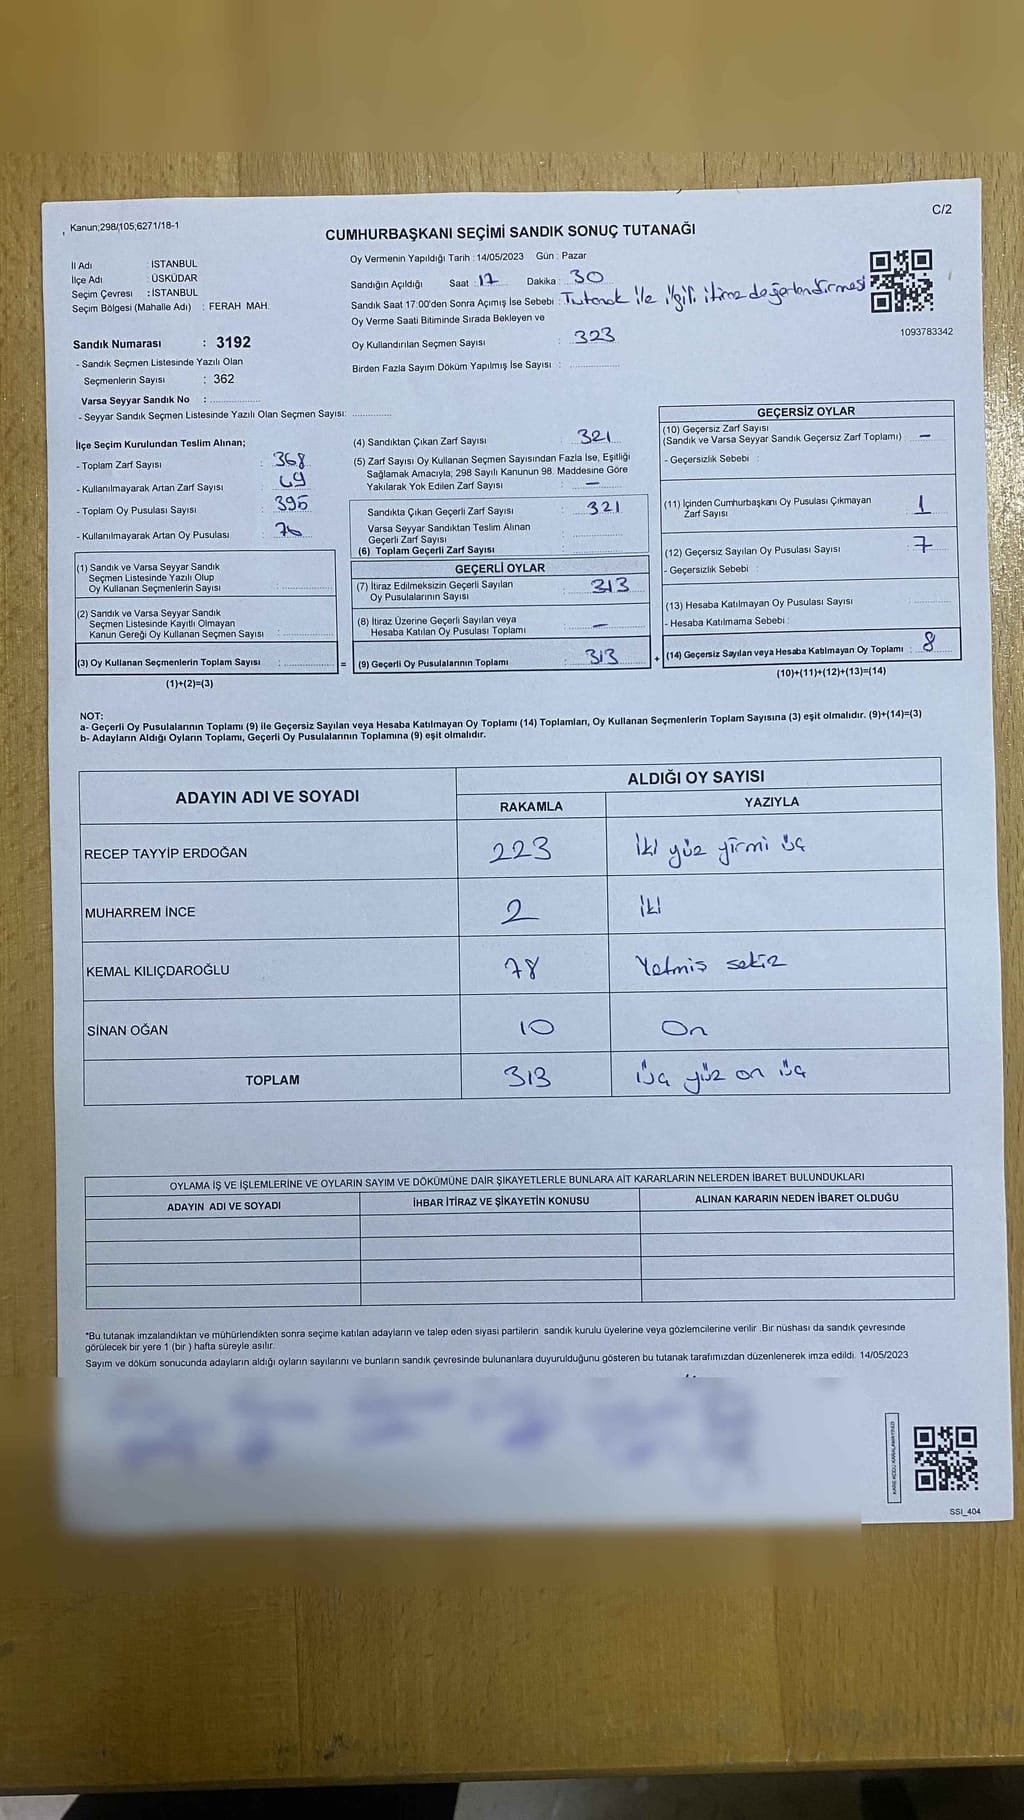 Kanun;298/105;6271/18-1
C/2
CUMHURBAŞKANI SEÇİMİ SANDIK SONUÇ TUTANAĞI
İl Adı : İSTANBUL
İlçe Adı : ÜSKÜDAR
Seçim Çevresi : İSTANBUL
Seçim Bölgesi (Mahalle Adı) : FERAH MAH.
Oy Vermenin Yapıldığı Tarih : 14/05/2023 Gün : Pazar
Sandığın Açıldığı Saat : 17 Dakika : 30
Sandık Saat 17:00'den Sonra Açımış İse Sebebi : Tutanak ile ilgili itiraz değerlendirmesi
Oy Verme Saati Bitiminde Sırada Bekleyen ve
Oy Kullandırılan Seçmen Sayısı : 323
Birden Fazla Sayım Döküm Yapılmış İse Sayısı :
1093783342
Sandık Numarası : 3192
- Sandık Seçmen Listesinde Yazılı Olan
Seçmenlerin Sayısı : 362
Varsa Seyyar Sandık No :
- Seyyar Sandık Seçmen Listesinde Yazılı Olan Seçmen Sayısı:
İlçe Seçim Kurulundan Teslim Alınan;
- Toplam Zarf Sayısı : 368
- Kullanılmayarak Artan Zarf Sayısı : 49
- Toplam Oy Pusulası Sayısı : 395
- Kullanılmayarak Artan Oy Pusulası : 76
(1) Sandık ve Varsa Seyyar Sandık
Seçmen Listesinde Yazılı Olup
Oy Kullanan Seçmenlerin Sayısı :
(2) Sandık ve Varsa Seyyar Sandık
Seçmen Listesinde Kayıtlı Olmayan
Kanun Gereği Oy Kullanan Seçmen Sayısı :
(3) Oy Kullanan Seçmenlerin Toplam Sayısı : =
(1)+(2)=(3)
(4) Sandıktan Çıkan Zarf Sayısı : 321
(5) Zarf Sayısı Oy Kullanan Seçmen Sayısından Fazla İse, Eşitliği
Sağlamak Amacıyla; 298 Sayılı Kanunun 98. Maddesine Göre
Yakılarak Yok Edilen Zarf Sayısı : —
Sandıkta Çıkan Geçerli Zarf Sayısı : 321
Varsa Seyyar Sandıktan Teslim Alınan
Geçerli Zarf Sayısı :
(6) Toplam Geçerli Zarf Sayısı :
GEÇERLİ OYLAR
(7) İtiraz Edilmeksizin Geçerli Sayılan
Oy Pusulalarının Sayısı : 313
(8) İtiraz Üzerine Geçerli Sayılan veya
Hesaba Katılan Oy Pusulası Toplamı : —
(9) Geçerli Oy Pusulalarının Toplamı : 313 +
GEÇERSİZ OYLAR
(10) Geçersiz Zarf Sayısı
(Sandık ve Varsa Seyyar Sandık Geçersiz Zarf Toplamı) : —
- Geçersizlik Sebebi :
(11) İçinden Cumhurbaşkanı Oy Pusulası Çıkmayan
Zarf Sayısı : 1
(12) Geçersiz Sayılan Oy Pusulası Sayısı : 7
- Geçersizlik Sebebi :
(13) Hesaba Katılmayan Oy Pusulası Sayısı :
- Hesaba Katılmama Sebebi :
(14) Geçersiz Sayılan veya Hesaba Katılmayan Oy Toplamı : 8
(10)+(11)+(12)+(13)=(14)
NOT:
a- Geçerli Oy Pusulalarının Toplamı (9) ile Geçersiz Sayılan veya Hesaba Katılmayan Oy Toplamı (14) Toplamları, Oy Kullanan Seçmenlerin Toplam Sayısına (3) eşit olmalıdır. (9)+(14)=(3)
b- Adayların Aldığı Oyların Toplamı, Geçerli Oy Pusulalarının Toplamına (9) eşit olmalıdır.
ADAYIN ADI VE SOYADI
ALDIĞI OY SAYISI
RAKAMLA YAZIYLA
RECEP TAYYİP ERDOĞAN 223 İki yüz yirmi üç
MUHARREM İNCE 2 İki
KEMAL KILIÇDAROĞLU 78 Yetmiş sekiz
SİNAN OĞAN 10 On
TOPLAM 313 Üç yüz on üç
OYLAMA İŞ VE İŞLEMLERİNE VE OYLARIN SAYIM VE DÖKÜMÜNE DAİR ŞİKAYETLERLE BUNLARA AİT KARARLARIN NELERDEN İBARET BULUNDUKLARI
ADAYIN ADI VE SOYADI İHBAR İTİRAZ VE ŞİKAYETİN KONUSU ALINAN KARARIN NEDEN İBARET OLDUĞU
*Bu tutanak imzalandıktan ve mühürlendikten sonra seçime katılan adayların ve talep eden siyasi partilerin sandık kurulu üyelerine veya gözlemcilerine verilir .Bir nüshası da sandık çevresinde
görülecek bir yere 1 (bir ) hafta süreyle asılır.
Sayım ve döküm sonucunda adayların aldığı oyların sayılarını ve bunların sandık çevresinde bulunanlara duyurulduğunu gösteren bu tutanak tarafımızdan düzenlenerek imza edildi. 14/05/2023
KARE KODU KARALAMAYINIZ!
SSI_404